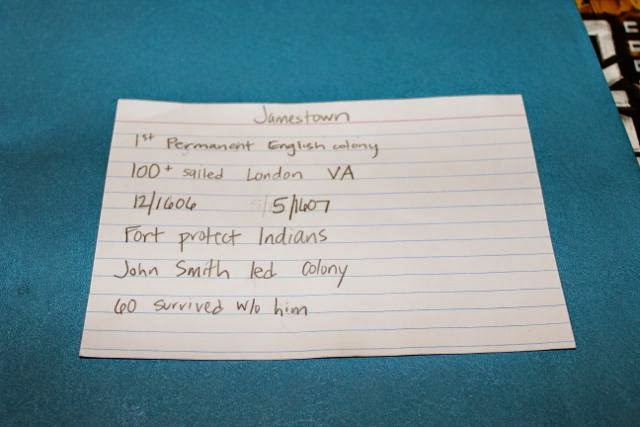 Jamestown
1st Permanent English colony
100+ sailed London VA
12/1606 5/1607
Fort protect Indians
John Smith led colony
60 survived w/o him